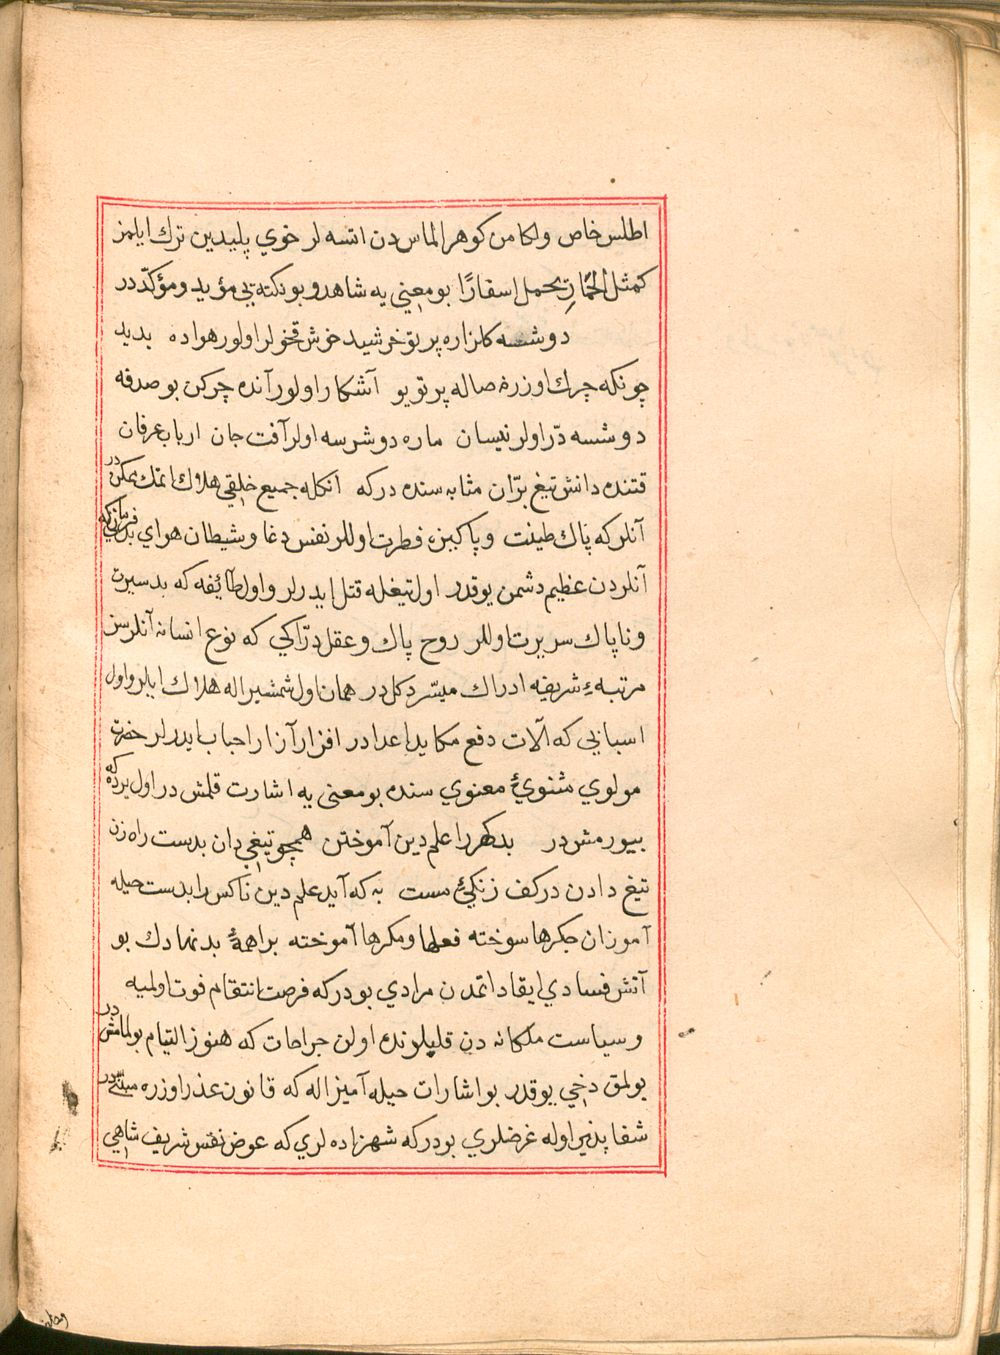 اطلس خاص ولكامن كوهر الماس دن اتسه لر خوي پليدين ترك ايلمز
كمثل الحمار يحمل اسفارًا بومعني يه شاهدو بونكته يي مؤيد ومؤكّد در
دوشسه كلزاره پرتو خرشيد خوش قخولر اولور هواده بديد
چونكه چرك اوزره صاله پرتويو آشكار اولور آنده چركن بو صدفه
دوشسه درّ اولر نيسان ماره دوشرسه اولر آفت جان ارباب عرفان
قتنده دانش تيغ برّان مثابه سنده دركه انكله جميع خلقي هلاك اتمك ممكن در
آنلر كه پاك طينت و پاكيزه فطرت اوللر نفس دغا و شيطان هواي بد فرمان كه
آنلردن عظيم دشمن يوقدر اول تيغله قتل ايدرلر و اول طآئفه كه بد سيرت
و ناپاك سريرت اوللر روح پاك وعقل درّاكي كه نوع انسانه آنلرسز
مرتبهء شريفه ادراك ميسّر دكلدر همان اول شمشير اله هلاك ايلر و اول
اسبابي كه آلات دفع مكايد اعدا در افزار آزار احباب ايدرلر حضرت
مولوي مثنوئ معنوي سنده بومعني يه اشارت قلمش در اول يرده كه
بيورمش در بدكهر را علم دين آموختن همچو تيغي دان بدست راه زن
تيغ دادن در كف زنكئ مست به كه آيد علم دين ناكس را بدست حيله
آموزان جكرها سوخته فعلها ومكرها آموخته براهمهٔ بدنهادك بو
آتش فسادي ايقاد اتمدن مرادي بودركه فرصت انتقام فوت اولميه
وسياست ملكانه دن قلبلرنده اولن جراحات كه هنوز التيام بولمامش در
بولمق دخي يوقدر بو اشارات حيله آميز اله كه قانون عذر اوزره مبتني در
شفا پذير اوله غرضلري بودركه شهزاده لري كه عوض نفس شريف شاهي